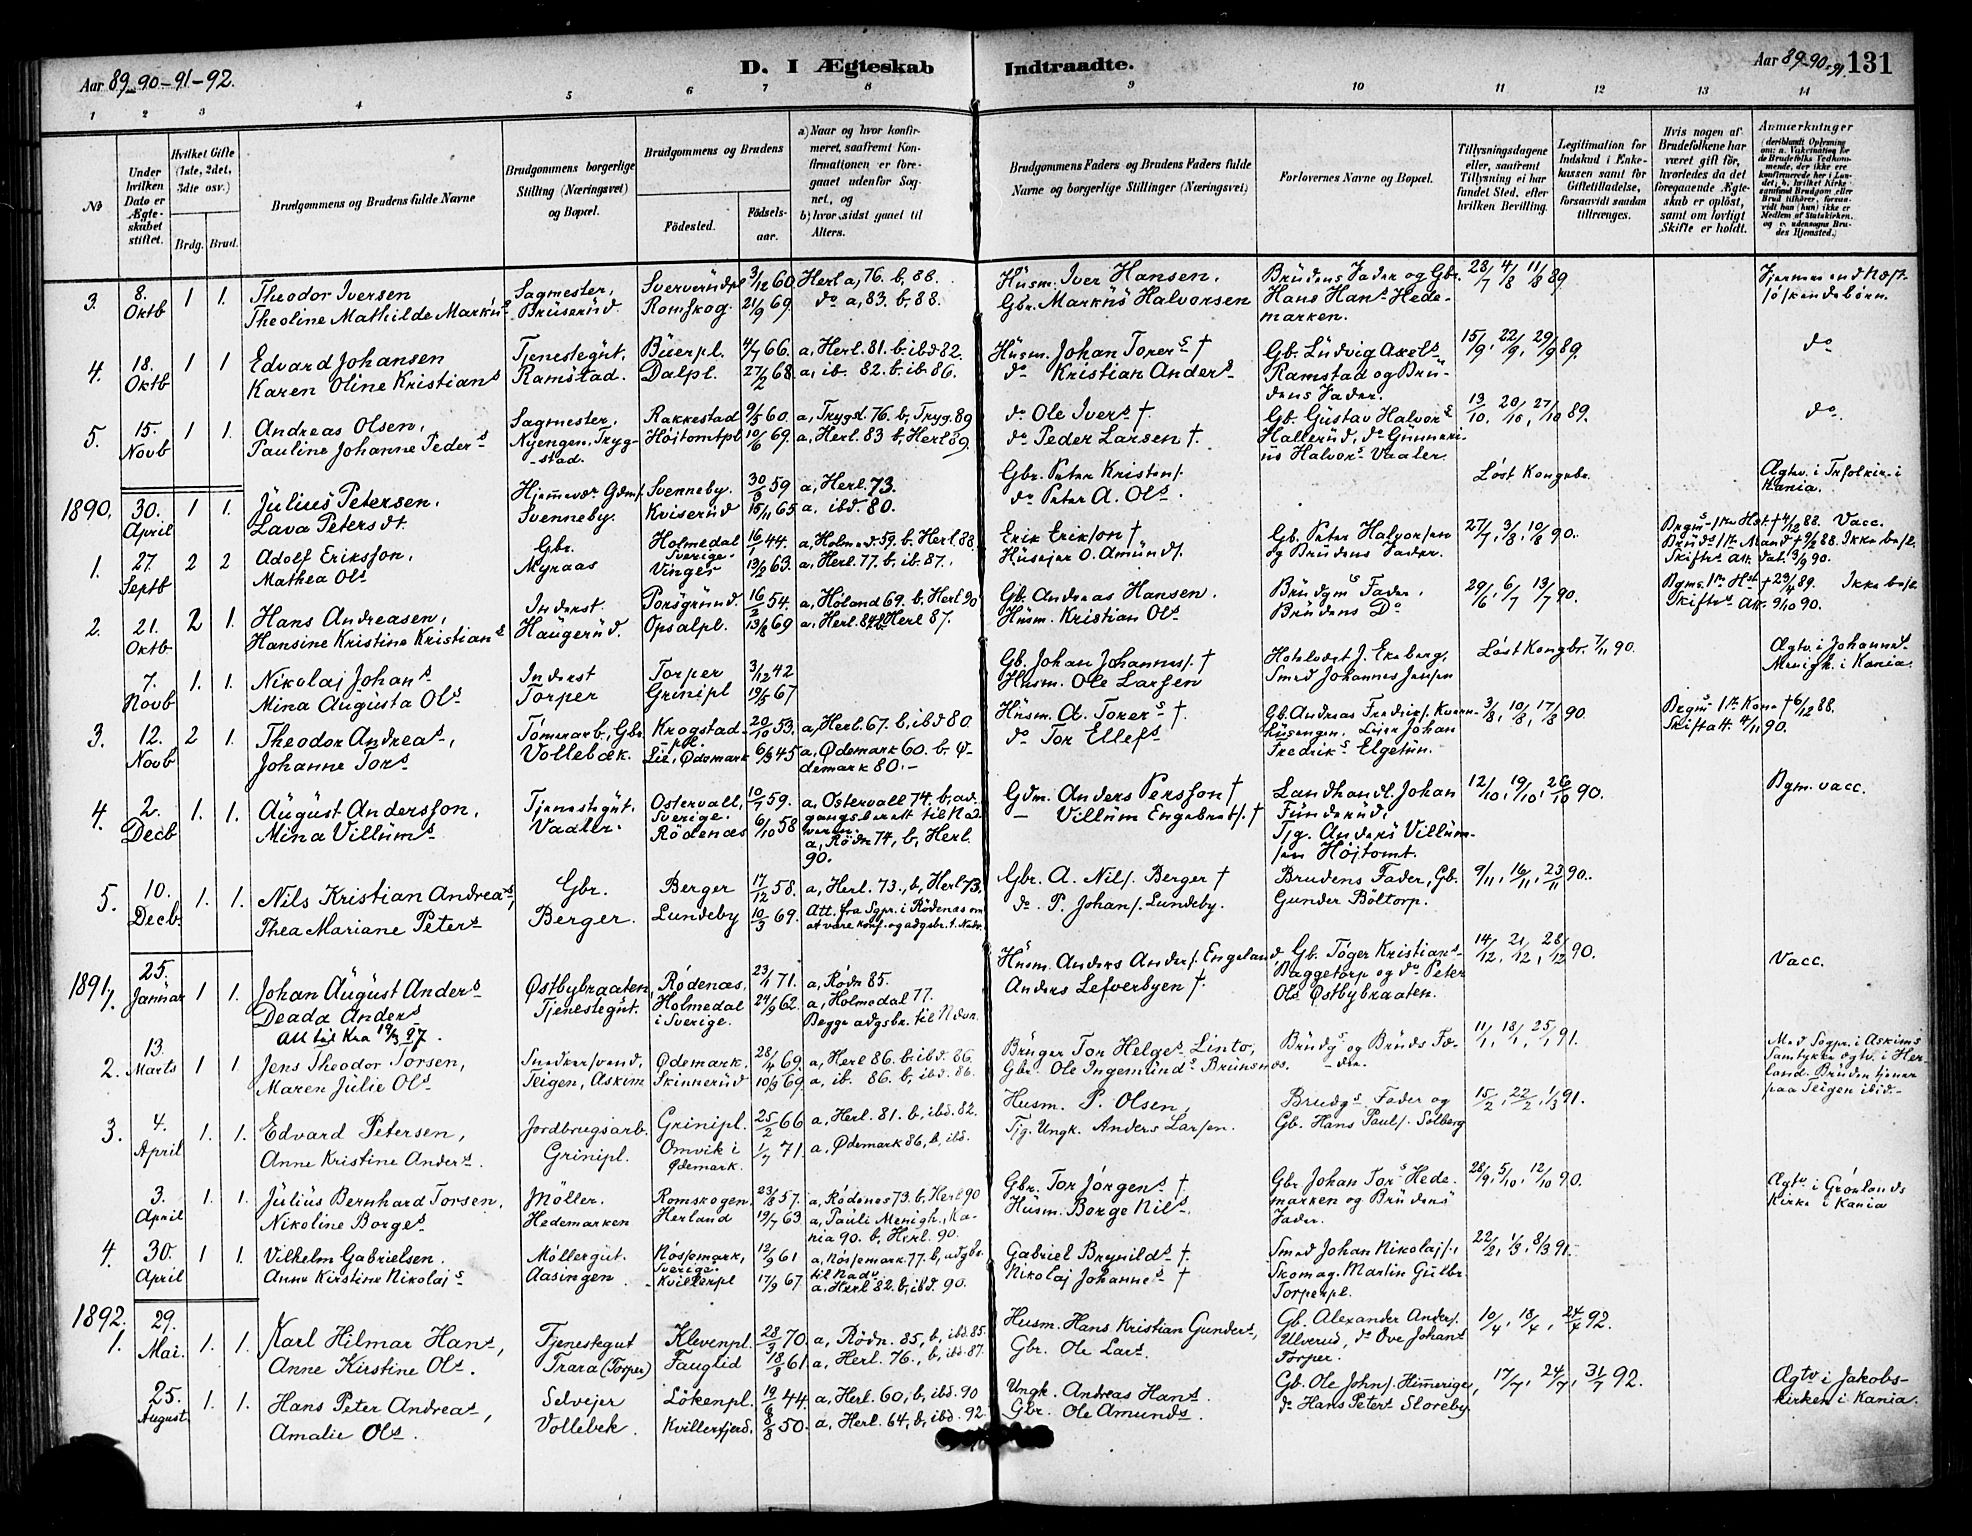 Aar 89-90-91-92.
D. I Ægteskab
Indtraadte.
Aar 89-90-91. 131
1 2 3 4 5 6 7 8 9 10 11 12 13 14
No
Under hvilken Dato er Ægteskabet stiftet.
Hvilket Gifte (1ste, 2det, 3die osv.)
Brdg. Brud.
Brudgommens og Brudens fulde Navne
Brudgommens borgerlige Stilling (Næringsvei) og Bopæl.
Brudgommens og Brudens
Fødested.
Fødselsaar.
a) Naar og hvor konfirmeret, saafremt Konfirmationen er foregaaet udenfor Sognet, og
b) hvor sidst gaaet til Alters.
Brudgommens Faders og Brudens Faders fulde Navne og borgerlige Stillinger (Næringsvei)
Forlovernes Navne og Bopæl.
Tillysningsdagene eller, saafremt Tillysning ei har fundet Sted, efter hvilken Bevilling.
Legitimation for Indskud i Enkekassen samt for Giftetilladelse, forsaavidt saadan tiltrænges.
Hvis nogen af Brudefolkene har været gift før, hvorledes da det foregaaende Ægteskab er opløst, samt om lovligt Skifte er holdt.
Anmærkninger
3. 8. Oktb 1 1. Theodor Iversen Sagmester, 3/12 60 Herl a, 76. b, 88. Husm. Iver Hansen. Brudens Fader og Gbr. 28/7 4/8 11/8 89
Theoline Mathilde Markus Bruserud. Romskog 21/9 69. do a, 83. b, 88. Gbr. Markus Halvorsen Hans Hans Hedemarken.
4. 18. Oktb 1 1 Edvard Johansen Tjenestegut, Buerpl. 4/7 66. a, Herl. 81. b. ibd 82. Husm. Johan Torers † Gb. Ludvig Axels 15/9, 22/9, 29/9 89. do
Karen Oline Kristians Ramstad. Dalpl. 27/2 68 a, ib. 82. b. ib 86. do Kristian Anders Ramstad og Brudens Fader.
5. 15. Novb 1 1. Andreas Olsen, Sagmester, Rakkestad 9/5 60. a, Trygd. 76. b, Tryg. 89 do Ole Ivers † Gb. Gustav Halvors 13/10, 20/10, 27/10 89. do.
Pauline Johanne Peders Nyengen, Trygstad. Højtomtpl 10/6 69. a, Herl. 83 b, Herl 89. do Peder Larsen †. Hallerud, do Gunnerius Halvors Vaaler
1890. 30. April 1 1. Julius Petersen, Svenneby. 30/3 59 a, Herl. 73. Gbr. Peter Kristens. Løst Kongebr. Ægtv. i Trefolkir. i Kania.
Lava Petersdt. Svenneby. Kviserud 15/11 65 a. ibd. 80. do Peter A. Ols.
1. 27. Septb 2 2 Adolf Eriksson, Gbr. Holmedal Sverige. 16/1 44. a, Holmed. 59. b. Herl 88. Erik Erikson † Gb. Peter Halvorsen 27/7, 3/8, 10/8 90. Brgms 1ste Hst † 4/12 88. Vacc.
Mathea Ols Myraas Vinger 13/2 63. a, Herl. 77. b. ib. 87. Husejer O. Amunds. og Brudens Fader. Bruds 1ste Mand † 9/2 88. Skifte
2. 21. Oktb 2 1. Hans Andreasen, Inderst. Porsgrund. 16/2 54. a, Høland 69. b, Herl 90 Gb. Andreas Hansen. Brudgms Fader. 29/6, 6/7, 13/7 90. Bgms. 1ste Hst † 23/4 89.
Hansine Kristine Kristians Haugerud. Opsalpl. 13/8 69 a, Herl. 84. b Herl 87. Husm. Kristian Ols Brudens Do Skifte 9/10 90.
7. Novb 1. 1. Nikolaj Johans Inderst Torper 3/12 42 Gb. Johan Johannes. † Hotelvært J. Ekeberg, Løst Kongbr. 7/11 90. Ægtv. i Johannes Menigh. i Kania
Mina Augusta Ols Torper Grinipl 19/5 67 Husm. Ole Larsen Smed Johannes Jensen
3. 12. Novb 2 1. Theodor Andreas, Tømrarb., Gbr Krogstadpl. 20/10 53. a, Herl. 67. b, ibd 80 Husm. A. Torers †. Gb. Andreas Fredriks. 3/8, 10/8, 17/8 90. Brgms 1ste Kone † 6/12 88.
Johanne Tors Vollebæk. Lie, Ødemark 6/3 45 a, Ødemark 60. b. Ødemark 80.- do Tor Ellefs Leier Johan Fredriks Elgetun. Skifte 4/11 90.
4. 2. Decb 1. 1. August Andersson, Tjenestegut. Ostervall, Sverige. 10/1 59. a, Ostervall, 74. b, adgangsberett. til Nadveren. Gdm. Anders Persson † Landhandl. Johan Funderud, 12/10, 19/10, 26/10 90. Bgm. vacc.
Mina Villums Vaaler. Rødenæs 6/10 58 a, Rødn 74, b, Herl. 90. Villum Engebrets. † Tjg. Anders Villumsen Højtomt.
5. 10. Decb. 1. 1. Nils Kristian Andreas, Gbr. Berger 17/12 58. a, Herl. 73., b, Herl 73. Gbr. A. Nils. Berger † Brudens Fader, Gb. 9/11, 16/11, 23/11 90.
Thea Mariane Peters Berger. Lundeby 10/3 69. Att. fra Sgpr. i Rødenæs om at være konf. og adgsbr. t. Nadv. do. P. Johans. Lundeby. Gunder Böltorp.
1891. 1. 25. Januar 1 1. Johan August Anders Østbybraaten, Rødenæs, 23/1 71. a, Rødn 85. Husm. Anders Anders. Engeland Gb. Tøger Kristians 14/12, 21/12, 28/12 90 Vacc.
Deada Anders Tjenestegut. Holmedal i Sverige. 24/9 62. a, Holmedal 77. Begge adgsbr. til Nadv. Anders Lefverbyen †. Baggetorp og do Peter Ols Østbybraaten.
Att til Kra 19/3 97.
2. 13. Marts 1 1. Jens Theodor Torsen, Snedkersvend, Ødemark, 28/4 69. a, Herl 86. b. ibd. 86. Bruger Tor Helges Linto, Brudgs og Bruds Fædre 11/1, 18/1, 25/1 91. Med Sogpr. i Askims Samtykke ægtv. i Herland. Bruden tjener paa Teigen ibid.-
Maren Julie Ols Teigen, Askim Skinnerud 10/3 69 a, ib. 86. b, ibd. 86. Gbr. Ole Ingemunds Brunsnæs.
3. 4. April 1. 1. Edvard Petersen, Jordbrugsarb. Grinipl. 25/2 66 a, Herl. 81. b, ibd. 82. Husm. P. Olsen, Brudgs Fader og 15/2, 22/2, 1/3 91.
Anne Kristine Anders. Grinipl. Omvik i Ødemark. 1/7 71. a, Ødemark 86, b, ibd. Tjg. Ungk. Anders Larsen. Gb. Hans Pauls. Solberg
3. April 1. 1. Julius Bernhard Torsen, Møller. Romskogen 23/8 57. a, Rødenæs 73. b, Herl 90 Gbr. Tor Jørgens † Gbr Johan Tors Hedemarken og Brudens Fader. 28/9, 5/10, 12/10 90. Ægtv. i Grønlands Kirke i Kania
Nikoline Borges Hedemarken Herland 19/7 63. a, Pauli Menigh., Kania 90. b, Herl. 90. Husm. Borge Nils.
4. 30. April 1 1. Vilhelm Gabrielsen. Møllergut. Nøssemark, Sverige. 12/9 61 a, Nøssemark 77. b, adgbr. til Nadv. Gabriel Brynilds †. Smed Johan Nikolajs., 22/2, 1/3, 8/3 91.
Anne Kirstine Nikolajs Aasingen. Kvillerpl 17/9 67 a. Herl 82. b, ibd. 90. Nikolaj Johannes † Skomag. Martin Gulbr. Torperpl.
1892. 1. 29. Mai. 1. 1. Karl Hilmar Hans, Tjenestegut Klevenpl. 28/3 70 a, Rødn. 85, b, ibd. 85. Husm. Hans Kristian Gunders, Gb. Alexander Anders. 10/4, 18/4, 24/4 92.
Anne Kirstine Ols. Trara (Torper) Fauglid 18/8 61 a, Herl. 76., b, ibd. 87. Gbr. Ole Lars. Ulverud, do Ove Johans Torper.
25. August 1. 1. Hans Peter Andreas, Selvejer Løkenpl. 19/6 44. a, Herl. 60, b, ibd. 90 Ungk. Andreas Hans. Gb. Ole Johns. Himmerige, 17/7, 24/7, 31/7 92. Ægtv i Jakobskirken i Kania.
Amalie Ols. Vollebek. Kvillersfjerd. 8/8 50. a, Herl. 64, b, ibd. 92. Gbr. Ole Amunds. do Hans Peters Sloreby.